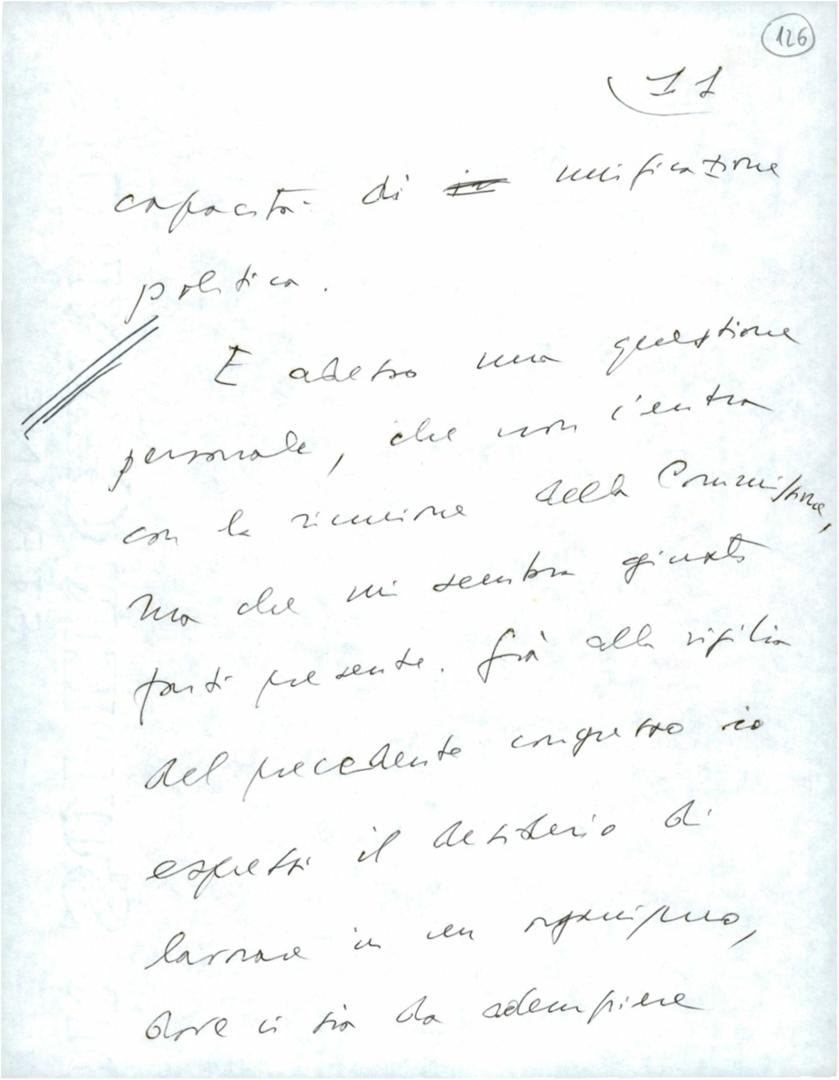 126
11
capacità di in unificazione
politica.
E adesso una questione
personale, che non c'entra
con la riunione della Commissione,
ma che mi sembra giusto
farti presente. Già alla vigilia
del precedente congresso io
espressi il desiderio di
lavorare in un organismo,
dove ci sia da adempiere